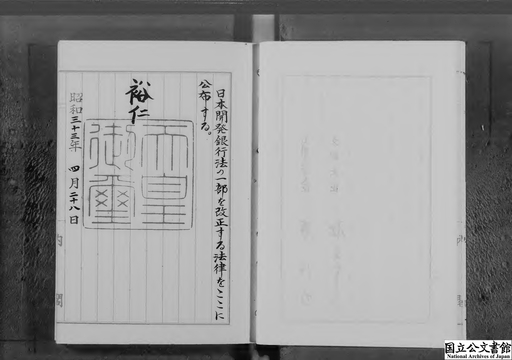 日本開発銀行法の一部を改正する法律をここに
公布する。
裕仁
天皇
御璽
昭和三十三年 四月二十八日
内
閣
国立公文書館
National Archives of Japan